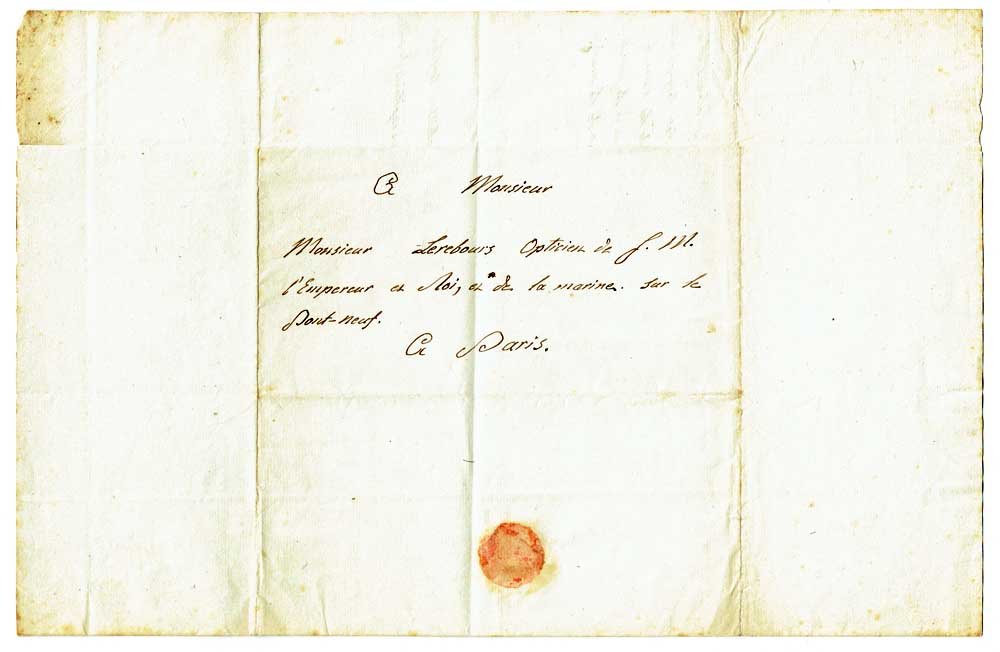 A Monsieur
Monsieur Lerebours Opticien de S. M.
l'Empereur et Roi, et de la marine. sur le
Pont-neuf.
A Paris.